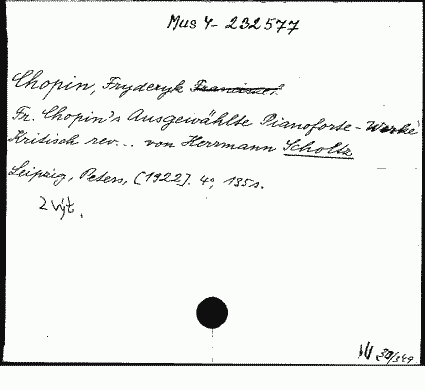 Mus 4- 232577
Chopin, Fryderyk
Fr. Chopin's Ausgewählte Pianoforte-Werke
Kritisch rev... von Herrmann Scholtz
Leipzig, Peters, [1922]. 4°, 135 s.
2 výt.
30/349